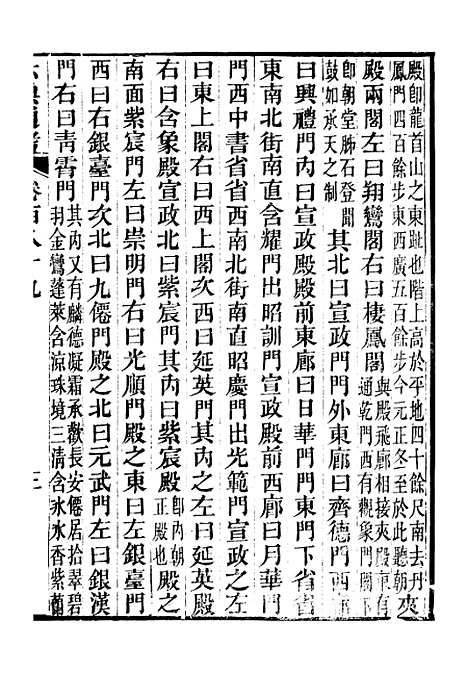 殿即龍首山之東趾也階上高於平地四十餘尺南去丹
鳳門四百餘步東西廣五百餘步今元正冬至於此聽朝夾
殿兩閣左曰翔鸞閣右曰棲鳳閣與殿飛廊相接夾殿東有
通乾門西有觀象門閣下
即朝堂肺石登聞
鼓如承天之制其北曰宣政門門外東廊曰齊德門西廊
曰興禮門內曰宣政殿殿前東廊曰日華門門東門下省省
東南北街南直含耀門出昭訓門宣政殿前西廊曰月華門
門西中書省省西南北街南直昭慶門出光範門宣政之左
曰東上閣右曰西上閣次西曰延英門其內之左曰延英殿
右曰含象殿宣政北曰紫宸門其內曰紫宸殿即內朝
正殿也殿之
南面紫宸門左曰崇明門右曰光順門殿之東曰左銀臺門
西曰右銀臺門次北曰九僊門殿之北曰元武門左曰銀漢
門右曰靑霄門其內又有麟德凝霜承歡長安僊居拾翠碧
羽金鸞蓬萊含涼珠境三清含冰水香紫蘭
卷百八十九
三